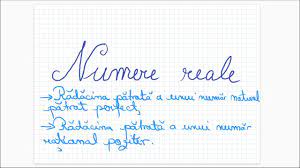 Numere reale
→ Rădăcina pătrată a unui număr natural
pătrat perfect;
→ Rădăcina pătrată a unui număr
rațional pozitiv.